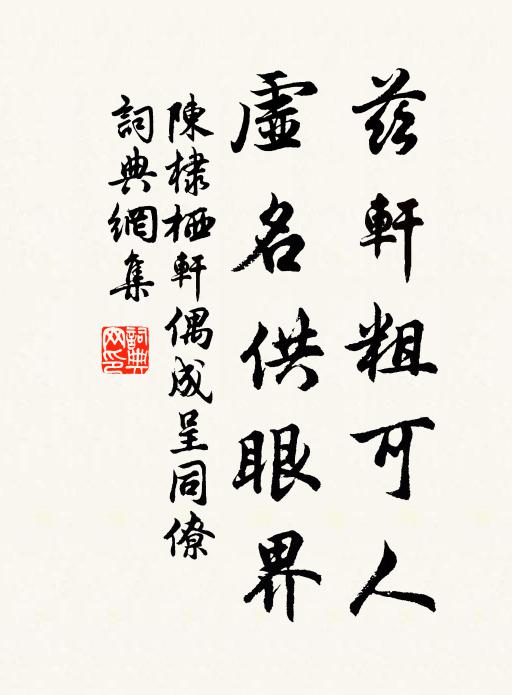 茲軒粗可人
虛名供眼界
陳棣栖軒偶成呈同僚
詞典網集
詞典
网印